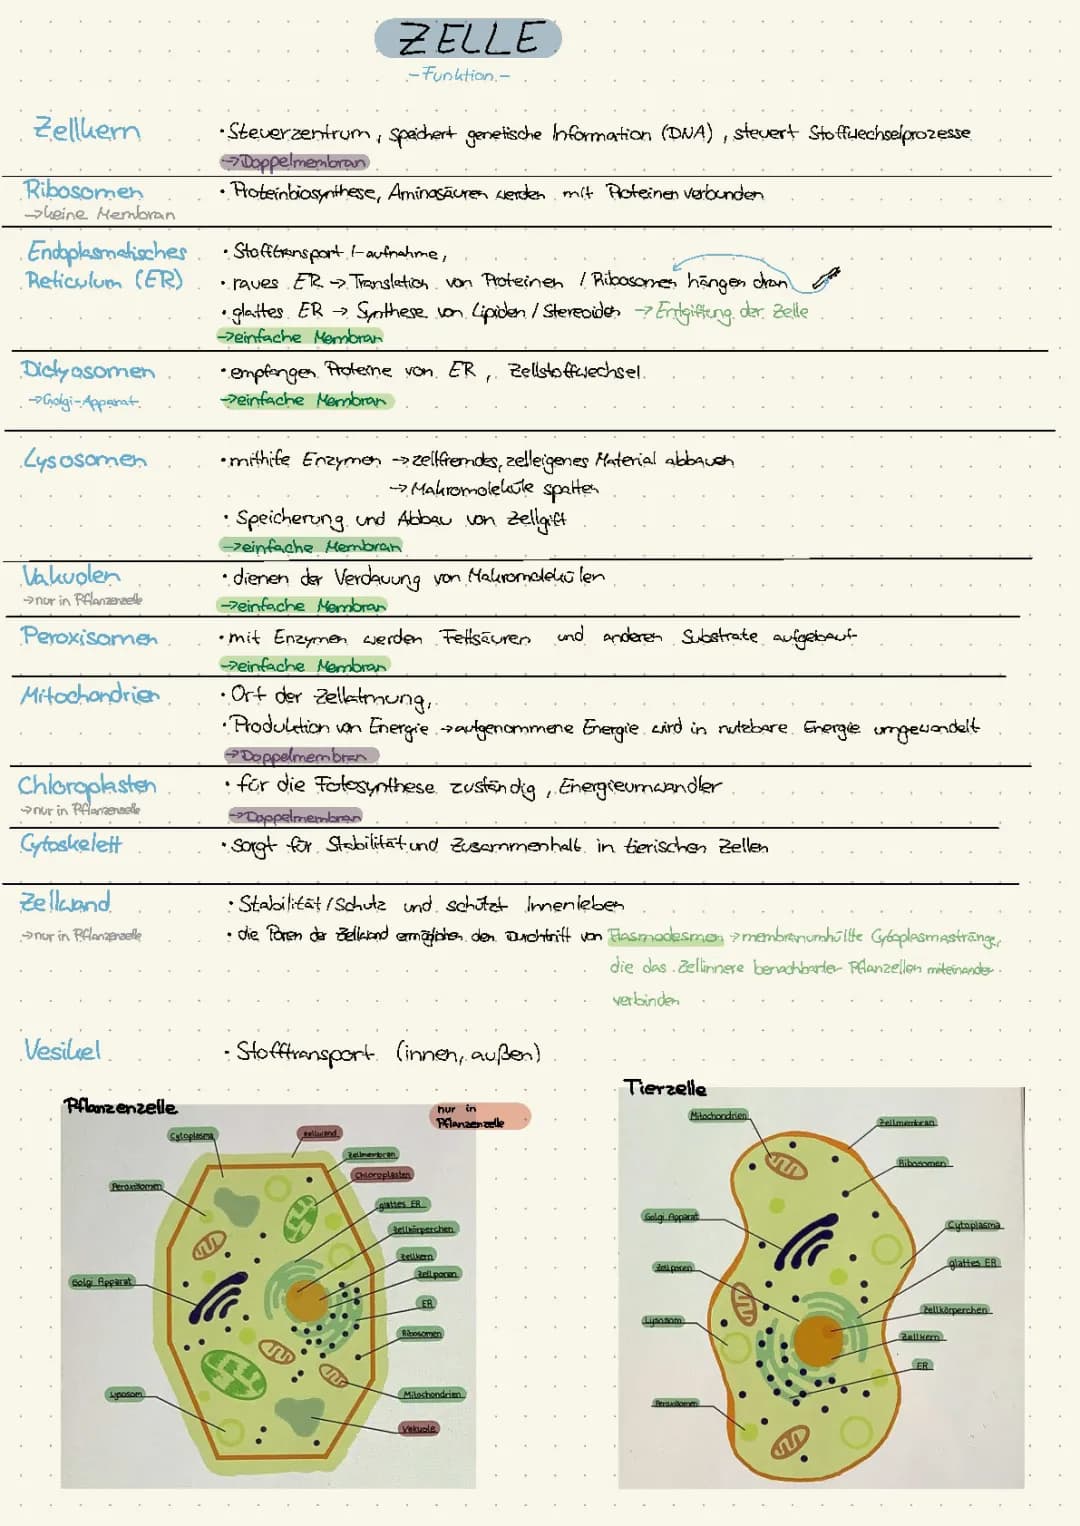 ZELLE
-Funktion.-
Zellkern
• Steuerzentrum, speichert genetische Information (DNA), steuert Stoffwechselprozesse
→Doppelmembran
Ribosomen
→keine Membran
• Proteinbiosynthese, Aminosäuren werden mit Proteinen verbunden
Endoplasmatisches
Reticulum (ER)
• Stofftransport /-aufnahme,
• raues ER → Translation von Proteinen / Ribosomen hängen dran
• glattes ER → Synthese von Lipiden / Stereoiden → Entgiftung der Zelle
→einfache Membran
Dictyosomen
→Golgi-Apparat
• empfangen Proteine von ER, Zellstoffwechsel
→einfache Membran
Lysosomen
• mithife Enzymen → zellfremdes, zelleigenes Material abbauen
→ Makromoleküle spalten
• Speicherung und Abbau von Zellgift
→einfache Membran
Vakuolen
→nur in Pflanzenzelle
• dienen der Verdauung von Makromolekülen
→einfache Membran
Peroxisomen
• mit Enzymen werden Fettsäuren und anderen Substrate aufgebaut
→einfache Membran
Mitochondrien
• Ort der Zellatmung,
• Produktion von Energie → aufgenommene Energie wird in nutzbare Energie umgewandelt
→Doppelmembran
Chloroplasten
→nur in Pflanzenzelle
• für die Fotosynthese zuständig, Energieumwandler
→Doppelmembran
Cytoskelett
• sorgt für Stabilität und Zusammenhalt in tierischen Zellen
Zellwand
→nur in Pflanzenzelle
• Stabilität / Schutz und schützt Innenleben
• die Poren der Zellwand ermöglichen den Durchtritt von Plasmodesmen → membranumhüllte Cytoplasmastränge,
die das Zellinnere benachbarter Pflanzellen miteinander
verbinden
Vesikel
• Stofftransport (innen, außen)
Pflanzenzelle
nur in
Pflanzenzelle
Cytoplasma
Zellwand
Zellmembran
Chloroplasten
Peroxisomen
glattes ER
Zellkörperchen
Zellkern
Zellporen
Golgi Apparat
ER
Ribosomen
Lysosom
Mitochondrien
Vakuole
Tierzelle
Mitochondrien
Zellmembran
Ribosomen
Golgi Apparat
Cytoplasma
Zellporen
glattes ER
Lysosom
Zellkörperchen
Zellkern
ER
Peroxisomen